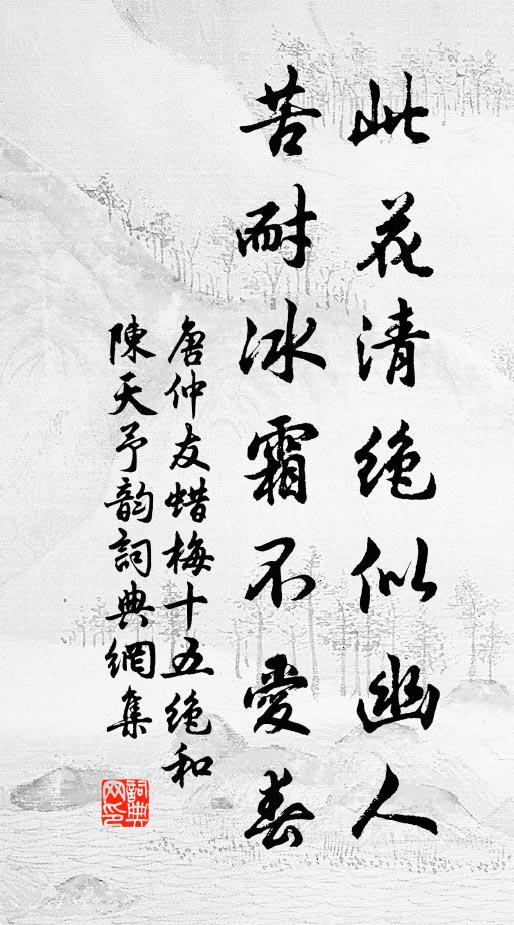 此花清絶似幽人
苦耐冰霜不愛春
唐仲友蜡梅十五絶和
陳天予韵詞典網集
詞典
网印